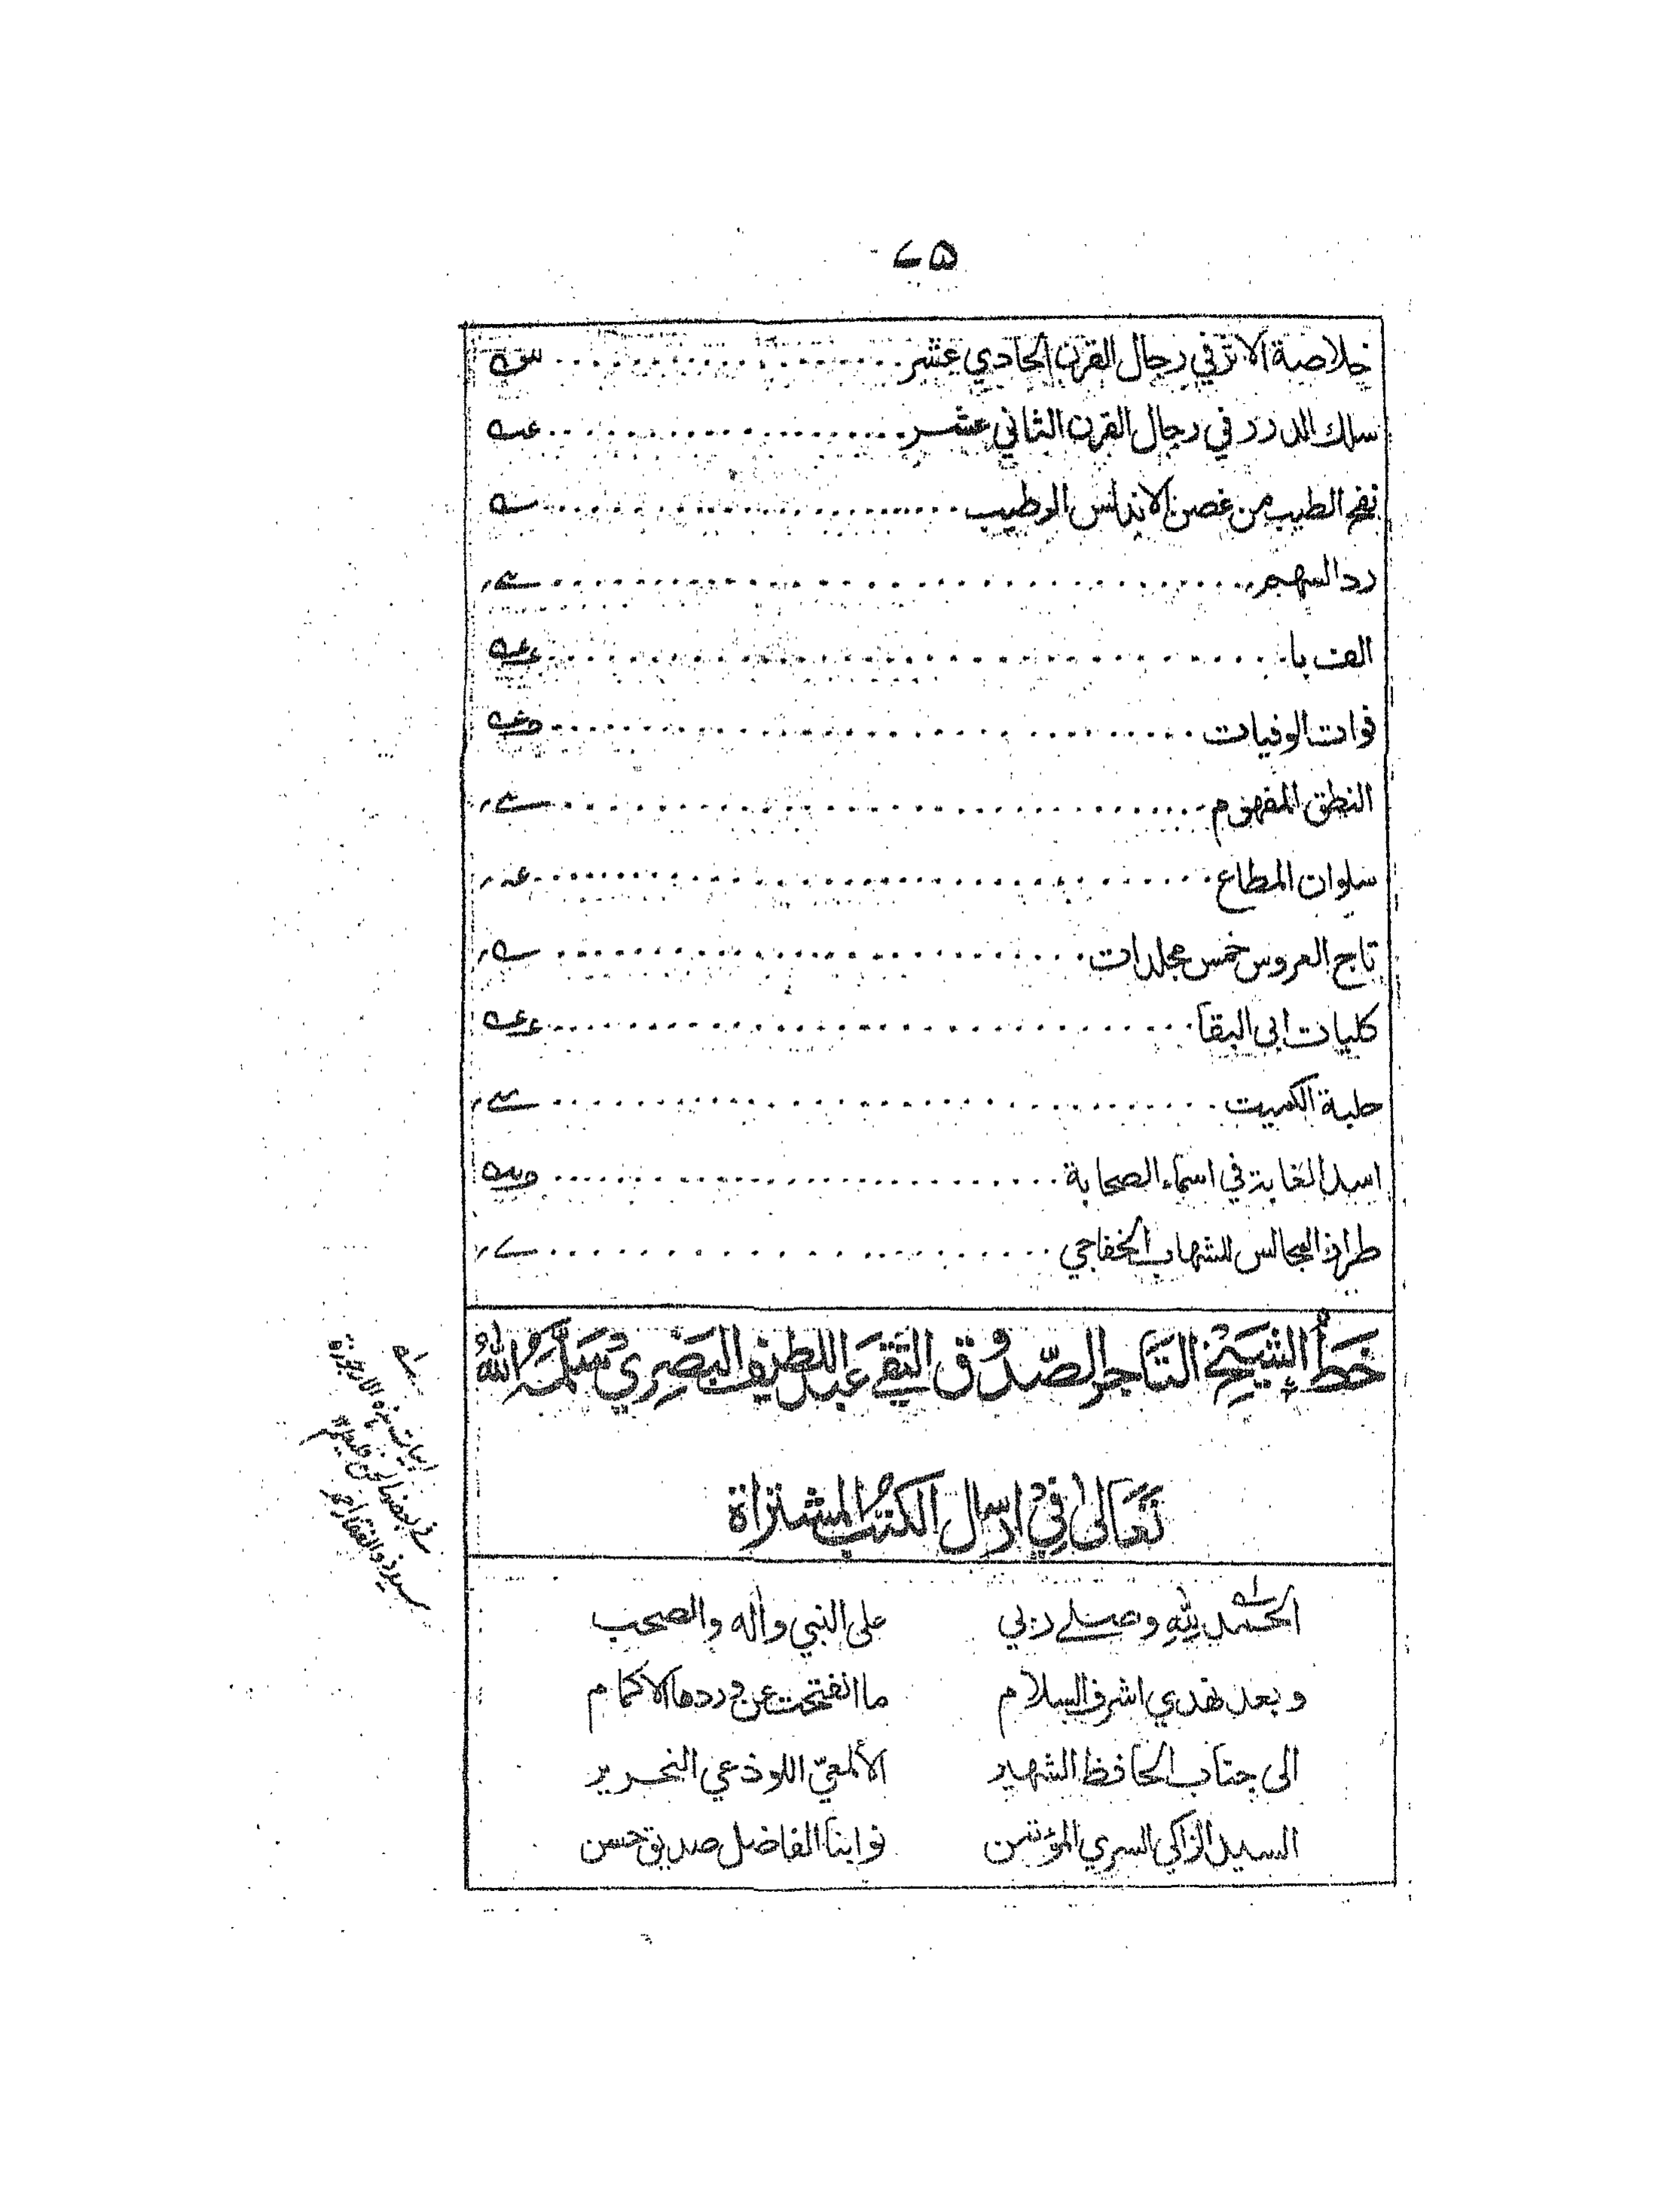 خلاصة الاثر في رجال القرن الحادي عشر
سلك الدرر في رجال القرن الثاني عشر
نفح الطيب من غصن الاندلس الرطيب
رد السهم
الف با
فوات الوفيات
النطق المفهوم
سلوان المطاع
تاج العروس خمس مجلدات
كليات ابى البقا
حلبة الكميت
اسد الغابة في اسماء الصحابة
طراز المجالس للشهاب الخفاجي
خَطُّ الشَّيْخِ التَّاجِرِ الصَّدُوقِ التَّقِي عَبدِ اللَّطِيْفِ البَصْرِيْ سَلَّمَهُ اللهُ
تَعَالىٰ فِيْ ارسال الكتب المشتراة
الحمد لله وصلى ربي على النبي وآله والصحب
وبعد نهدي اشرف السلام ما انفتحت عن وردها الاكمام
الى جناب الحافظ الشهير الألمعيّ اللوذعي النحرير
السيد الزاكي السري المؤتمن نوابنا الفاضل صديق حسن